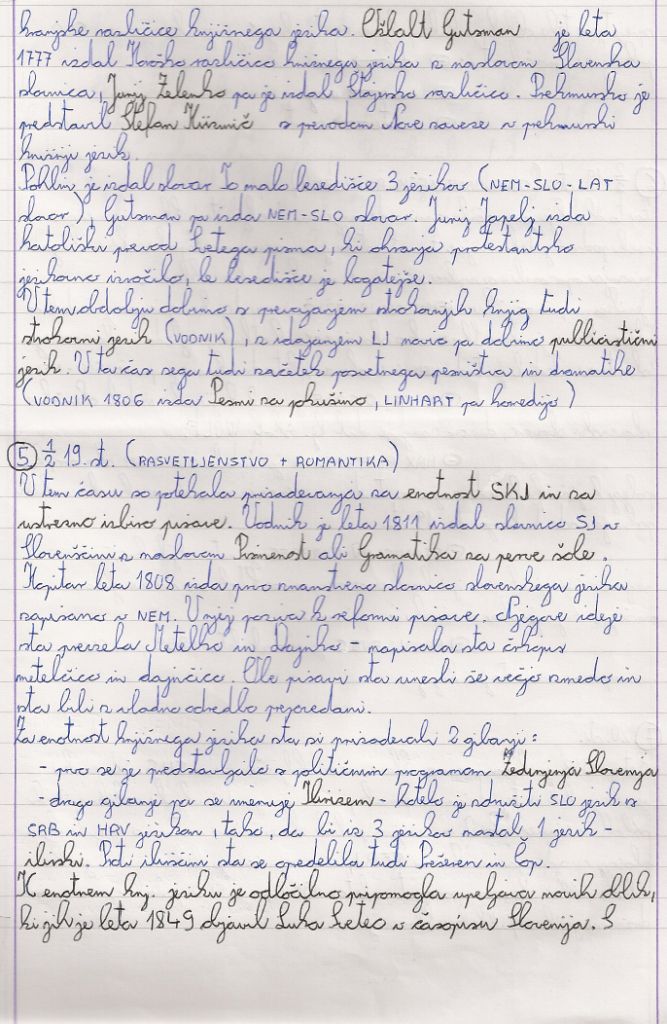 kranjske različice knjižnega jezika. Ožbalt Gutsman je leta
1777 izdal Koroško različico knižnega jezika z naslovom Slovenska
slovnica, Jurij Zelenko pa je izdal Štajersko različico. Prekmursko je
predstavil Štefan Küzmič s prevodom Nove zaveze v prekmurski
knjižnji jezik.
Pohlin je izdal slovar To malo besedišče 3 jezikov (NEM-SLO-LAT
slovar), Gutsman pa izda NEM-SLO slovar. Jurij Japelj izda
katoliški prevod Svetega pisma, ki ohranja protestantsko
jezikovno izročilo, le besedišče je bogatejše.
V tem obdobju dobimo s prevajanjem strokovnjih knjig tudi
strokovni jezik (VODNIK), z izdajanjem LJ novic pa dobimo publicistični
jezik. V ta čas sega tudi začetek posvetnega pesništva in dramatike
(VODNIK 1806 izda Pesmi za pokušino, LINHART pa komedijo)
5 1/2 19. st. (RASVETLJENSTVO + ROMANTIKA)
V tem času so potekala prizadevanja za enotnost SKJ in za
ustrezno izbiro pisave. Vodnik je leta 1811 izdal slovnico SJ v
Slovenščini z naslovom Pismenost ali Gramatika za perve šole.
Kopitar leta 1808 izda prvo znanstveno slovnico slovenskega jezika
zapisano v NEM. V njej poziva k reformi pisave. Njegove ideje
sta prevzela Metelko in Dajnko - napisala sta črkopis
metelčico in dajnčico. Obe pisavi sta vnesli še večjo zmedo in
sta bili z vladno odredbo prepovedani.
Za enotnost knjižnega jezika sta si prizadevali 2 gibanji:
- prvo se je predstavljalo s političnim programom Zedinjenja Slovenija
- drugo gibanje pa se imenuje Ilirizem - hotelo je združiti SLO jezik s
SRB in HRV jezikom, tako, da bi iz 3 jezikov nastal 1 jezik -
ilirski. Proti ilirščini sta se opredelila tudi Prešeren in Čop.
K enotnem knj. jeziku je odločilno pripomogla vpeljava novih oblik,
ki jih je leta 1849 objavil Luka Svetec v časopisu Slovenija. S